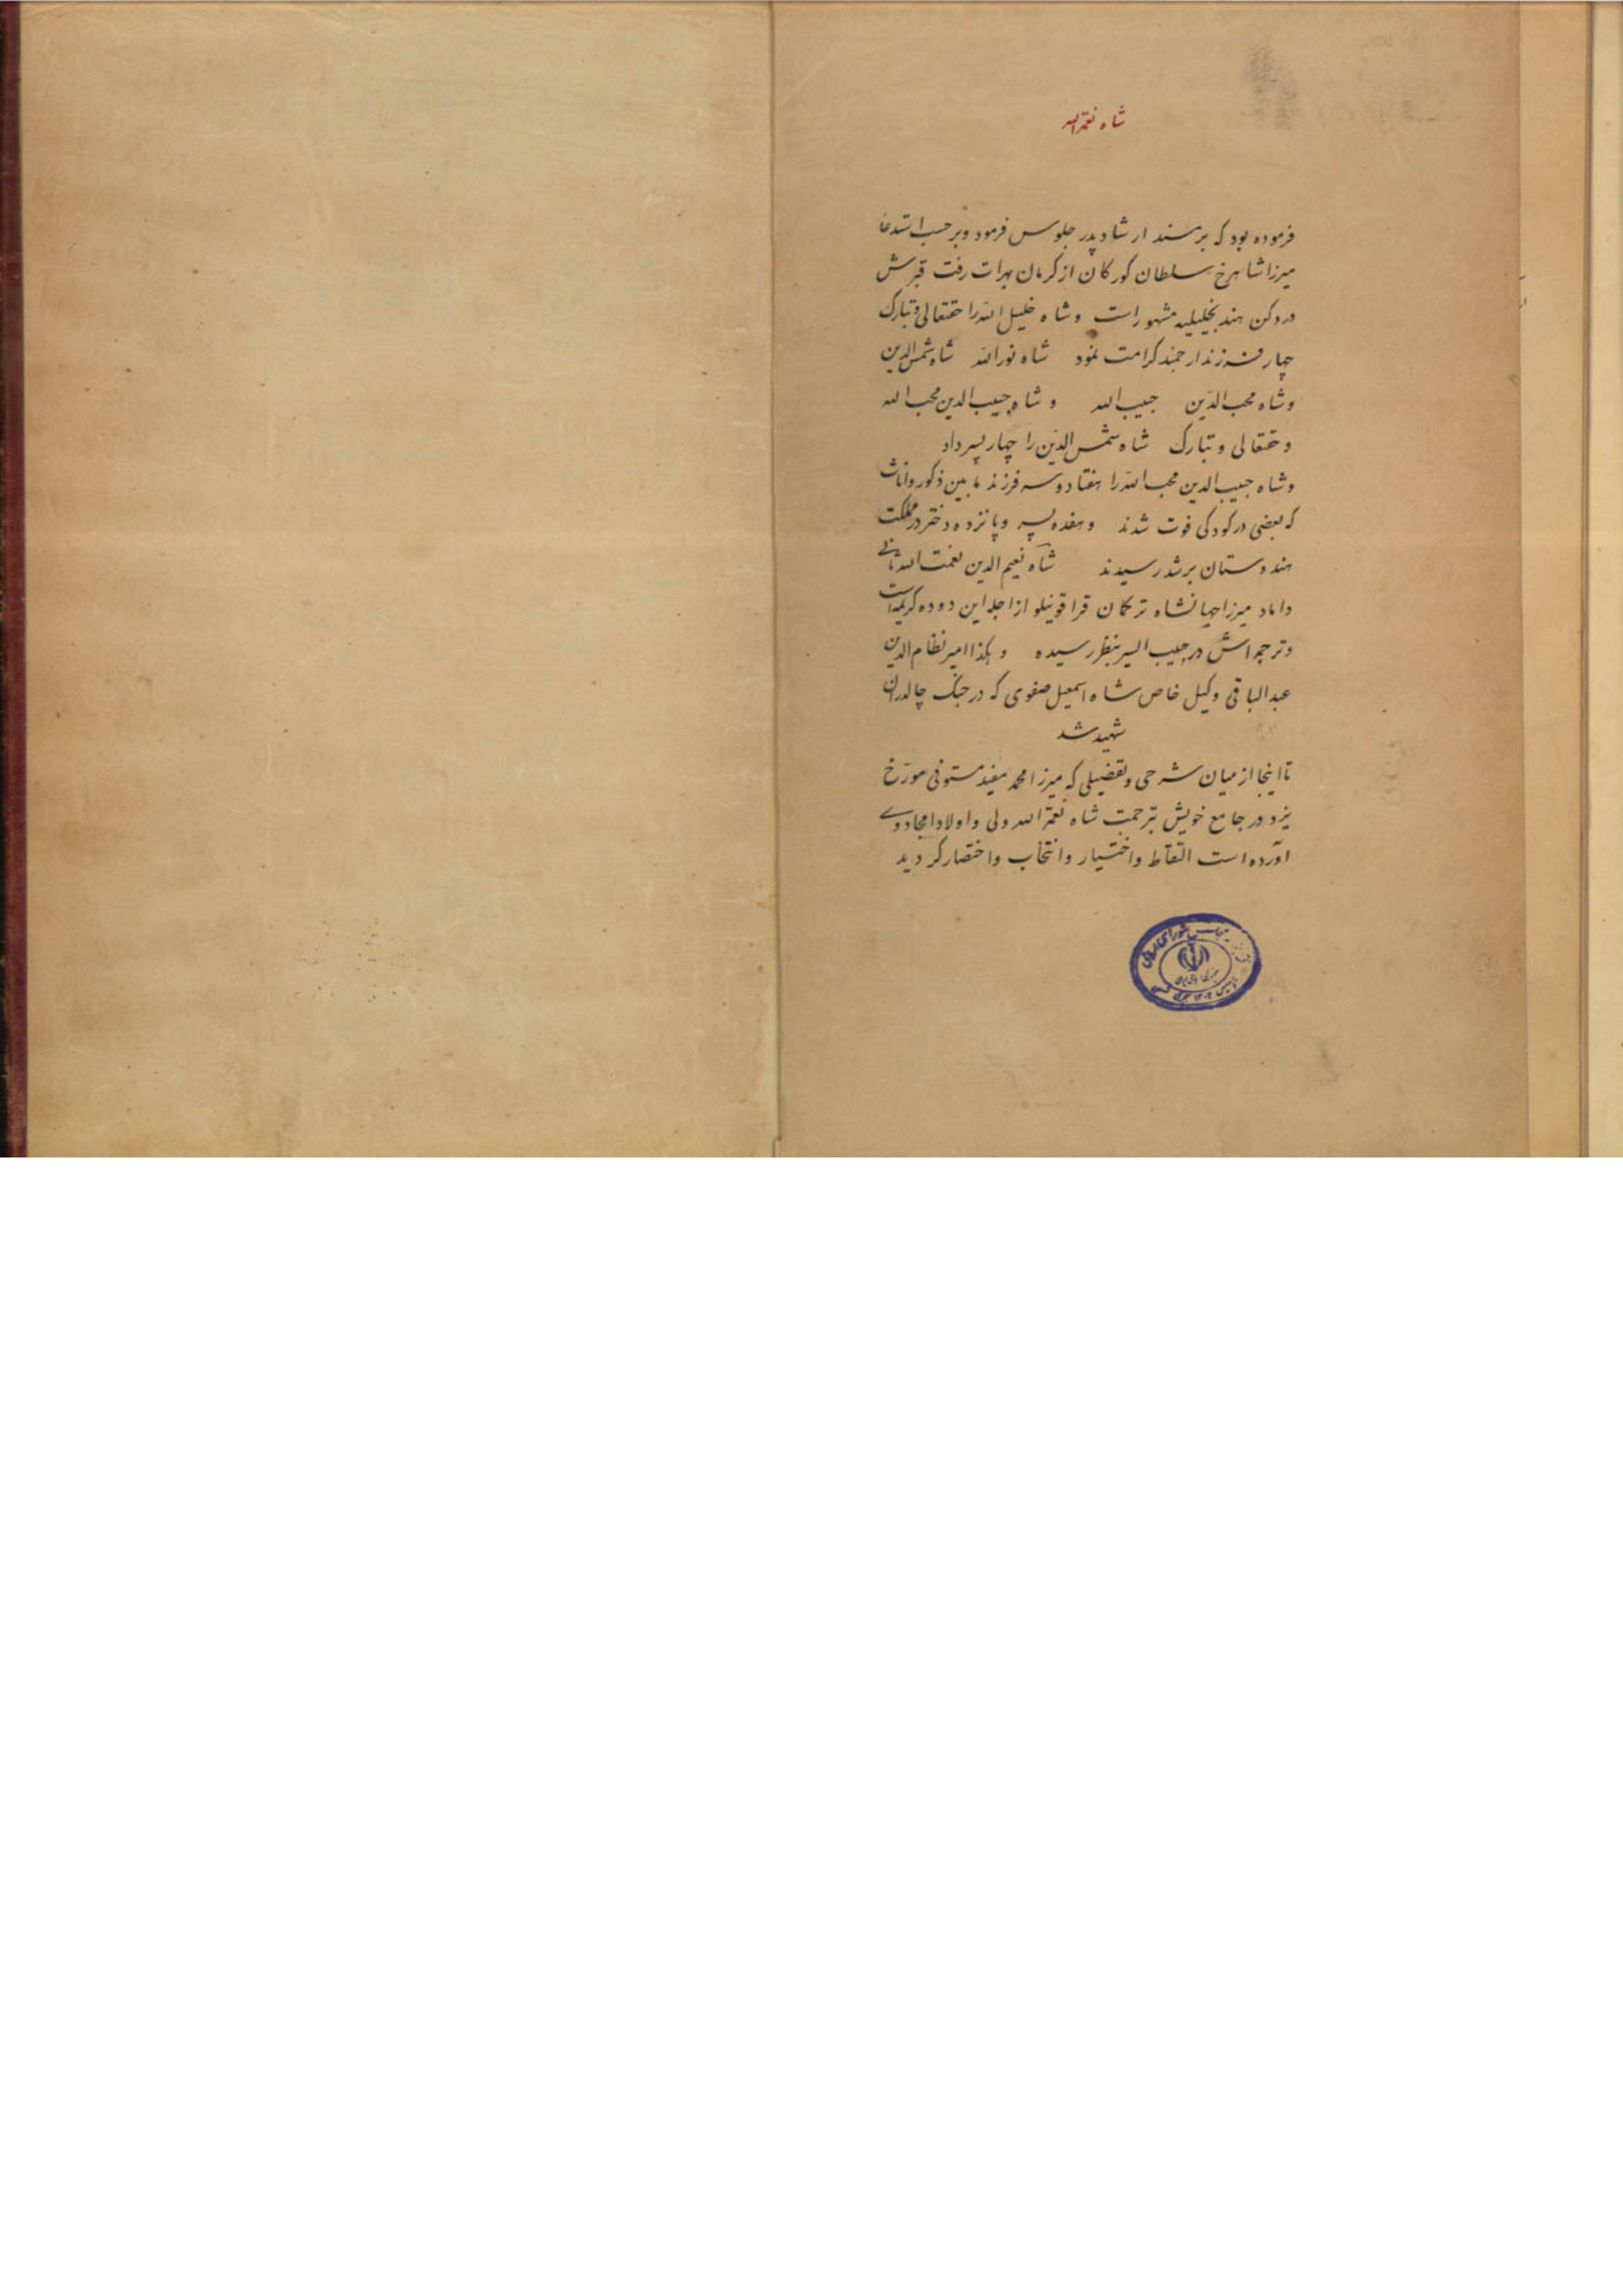 شاه نعمة الله
فرموده بود که بر مسند ارشاد پدر جلوس فرمود و بر حسب استدعا
میرزا شاهرخ سلطان کورکان از کرمان بهرات رفت قبرش
در دکن هند بخلیلیه مشهور است و شاه خلیل الله را حقتعالی و تبارک
چهار فرزند ارجمند کرامت نمود شاه نورالله شاه شمس الدین
و شاه محب الدین حبیب الله و شاه حبیب الدین محب الله
و حقتعالی و تبارک شاه شمس الدین را چهار پسر داد
و شاه حبیب الدین محب الله را هفتاد و سه فرزند ما بین ذکور و اناث
که بعضی در کودکی فوت شدند و هفده پسر و پانزده دختر در مملکت
هندوستان برشد رسیدند شاه نعیم الدین نعمت الله ثانی
داماد میرزا جهانشاه ترکمان قراقوینلو از اجله این دوده کریمه است
و ترجمه اش در حبیب السیر بنظر رسیده و هکذا امیر نظام الدین
عبد الباقی وکیل خاص شاه اسمعیل صفوی که در جنک چالدران
شهید شد
تا اینجا از میان شرحی و تفصیلی که میرزا محمد مفید مستوفی مورخ
یزد در جامع خویش بترجمت شاه نعمة الله ولی و اولاد امجاد وی
آورده است التقاط و اختیار و انتخاب و اختصار کردید
مجلس شورای اسلامی